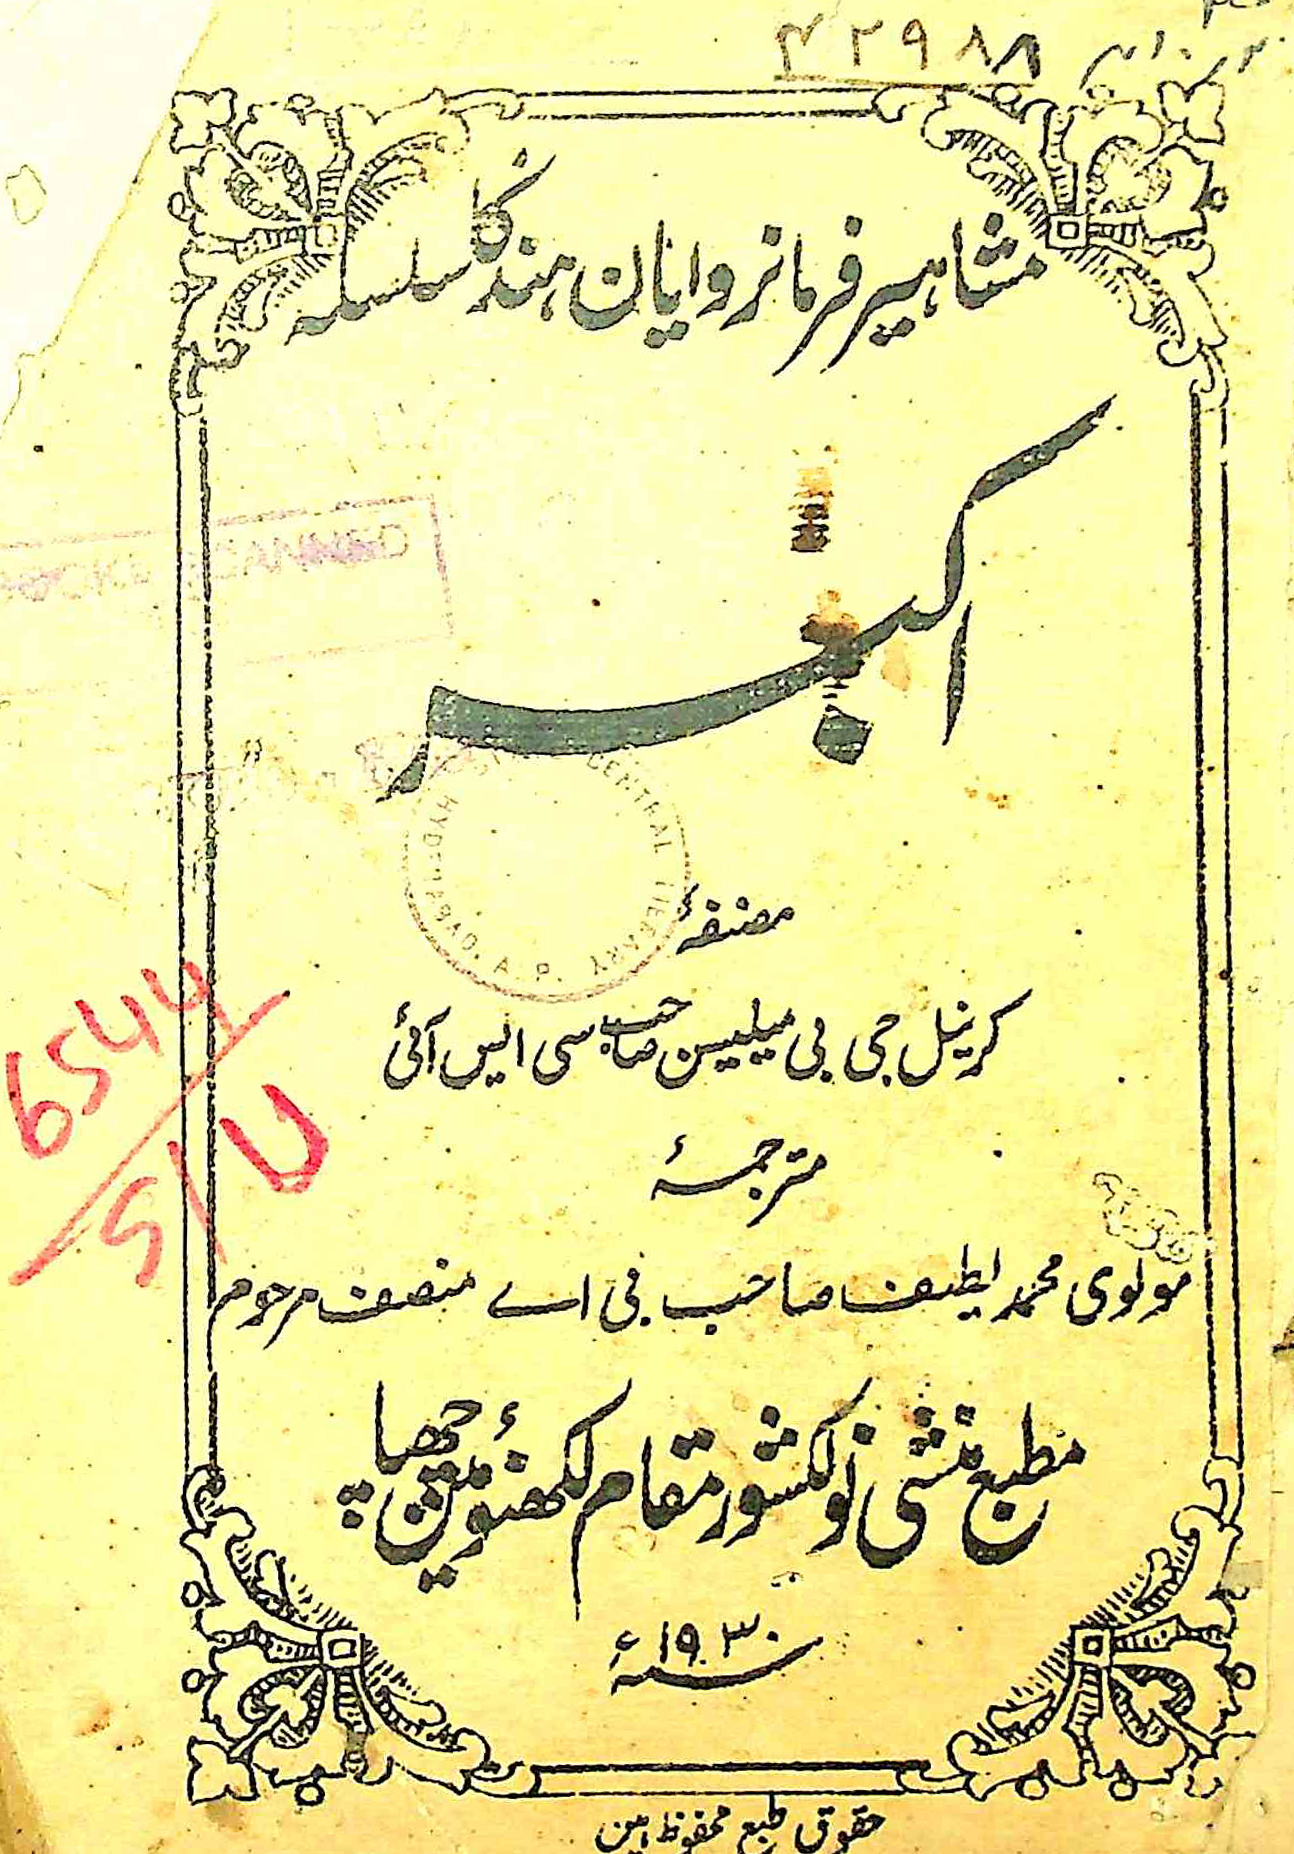 42988
مشاہیر فرمانروایان ہند کا سلسلہ
اکبر
CENTRAL LIBRARY HYDERABAD. A. P.
مصنفۂ
کرینل جی بی میلیسن صاحب سی ایس آئی
مترجمۂ
مولوی محمد لطیف صاحب بی اے منصف مرحوم
مطبع منشی نولکشور مقام لکھنؤ میں چھپا
سنہ ۱۹۳۰ء
حقوق طبع محفوظ ہیں